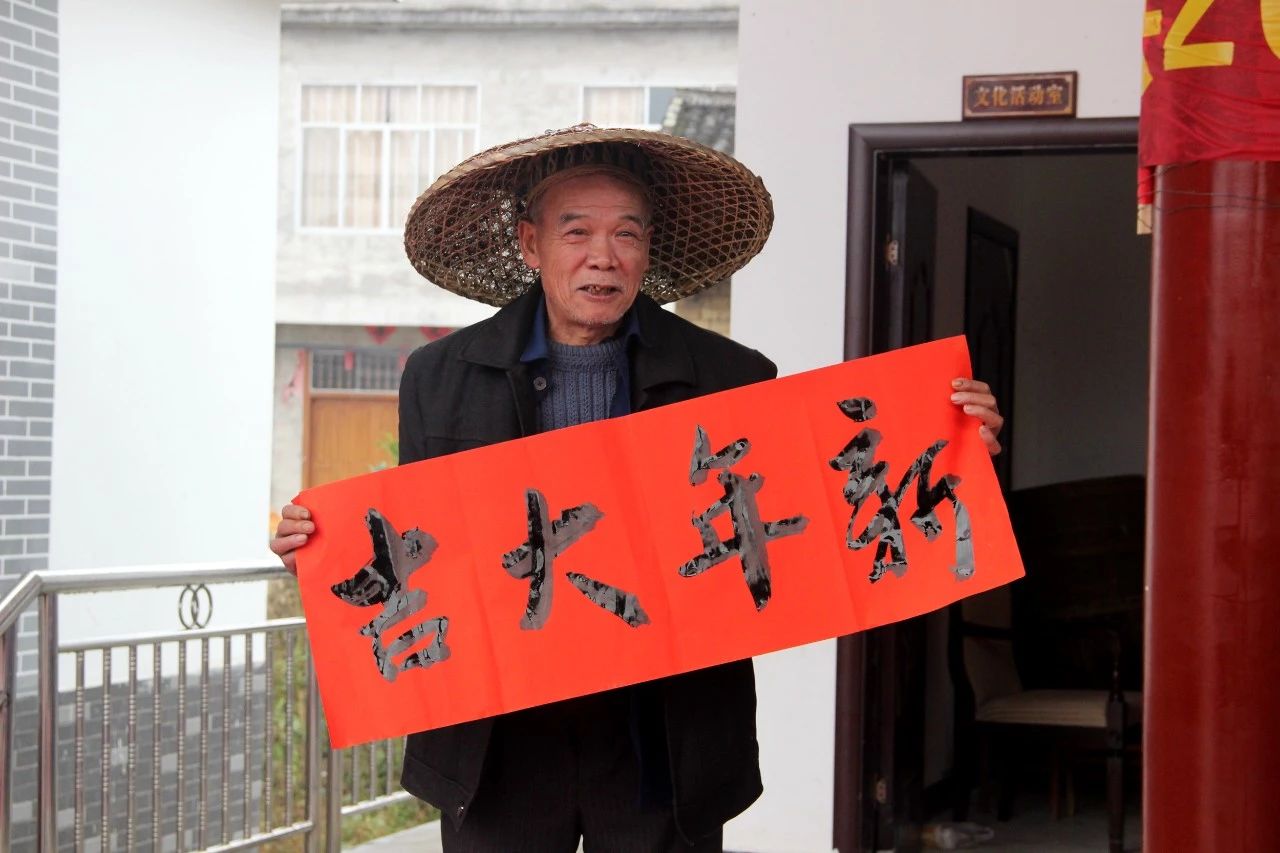 文化活动室
新年大吉